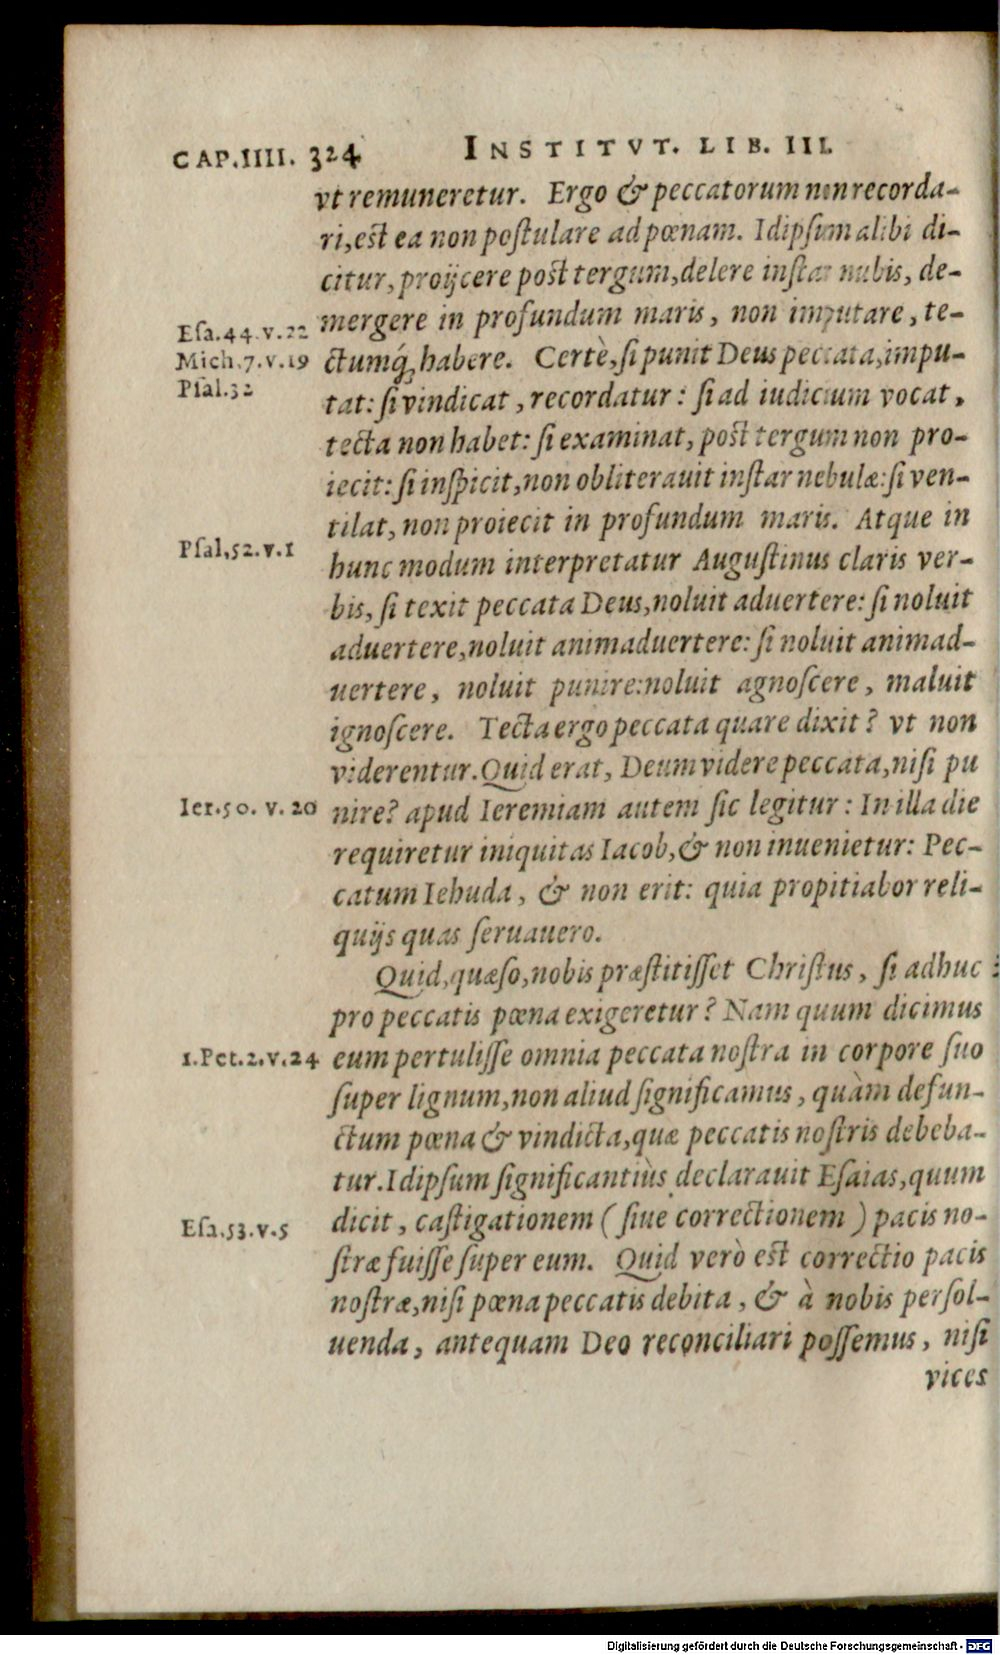 CAP.IIII. 324 INSTITVT. LIB. III.
vt remuneretur. Ergo & peccatorum non recorda-
ri, est ea non postulare ad pœnam. Idipsum alibi di-
citur, proijcere post tergum, delere instar nubis, de-
Esa.44.v.22 mergere in profundum maris, non imputare, te-
Mich.7.v.19 ctumq́; habere. Certè, si punit Deus peccata, impu-
Psal.32 tat: si vindicat, recordatur: si ad iudicium vocat,
tecta non habet: si examinat, post tergum non pro-
iecit: si inspicit, non obliterauit instar nebulæ: si ven-
tilat, non proiecit in profundum maris. Atque in
Psal.52.v.1 hunc modum interpretatur Augustinus claris ver-
bis, si texit peccata Deus, noluit aduertere: si noluit
aduertere, noluit animaduertere: si noluit animad-
uertere, noluit punire: noluit agnoscere, maluit
ignoscere. Tecta ergo peccata quare dixit? vt non
viderentur. Quid erat, Deum videre peccata, nisi pu
Ier.50. v. 20 nire? apud Ieremiam autem sic legitur: In illa die
requiretur iniquitas Iacob, & non inuenietur: Pec-
catum Iehuda, & non erit: quia propitiabor reli-
quijs quas seruauero.
Quid, quæso, nobis præstitisset Christus, si adhuc
pro peccatis pœna exigeretur? Nam quum dicimus
1.Pet.2.v.24 eum pertulisse omnia peccata nostra in corpore suo
super lignum, non aliud significamus, quàm defun-
ctum pœna & vindicta, quæ peccatis nostris debeba-
tur. Idipsum significantiùs declarauit Esaias, quum
Esa.53.v.5 dicit, castigationem (siue correctionem) pacis no-
stræ fuisse super eum. Quid verò est correctio pacis
nostræ, nisi pœna peccatis debita, & à nobis persol-
uenda, antequam Deo reconciliari possemus, nisi
vices
Digitalisierung gefördert durch die Deutsche Forschungsgemeinschaft - DFG